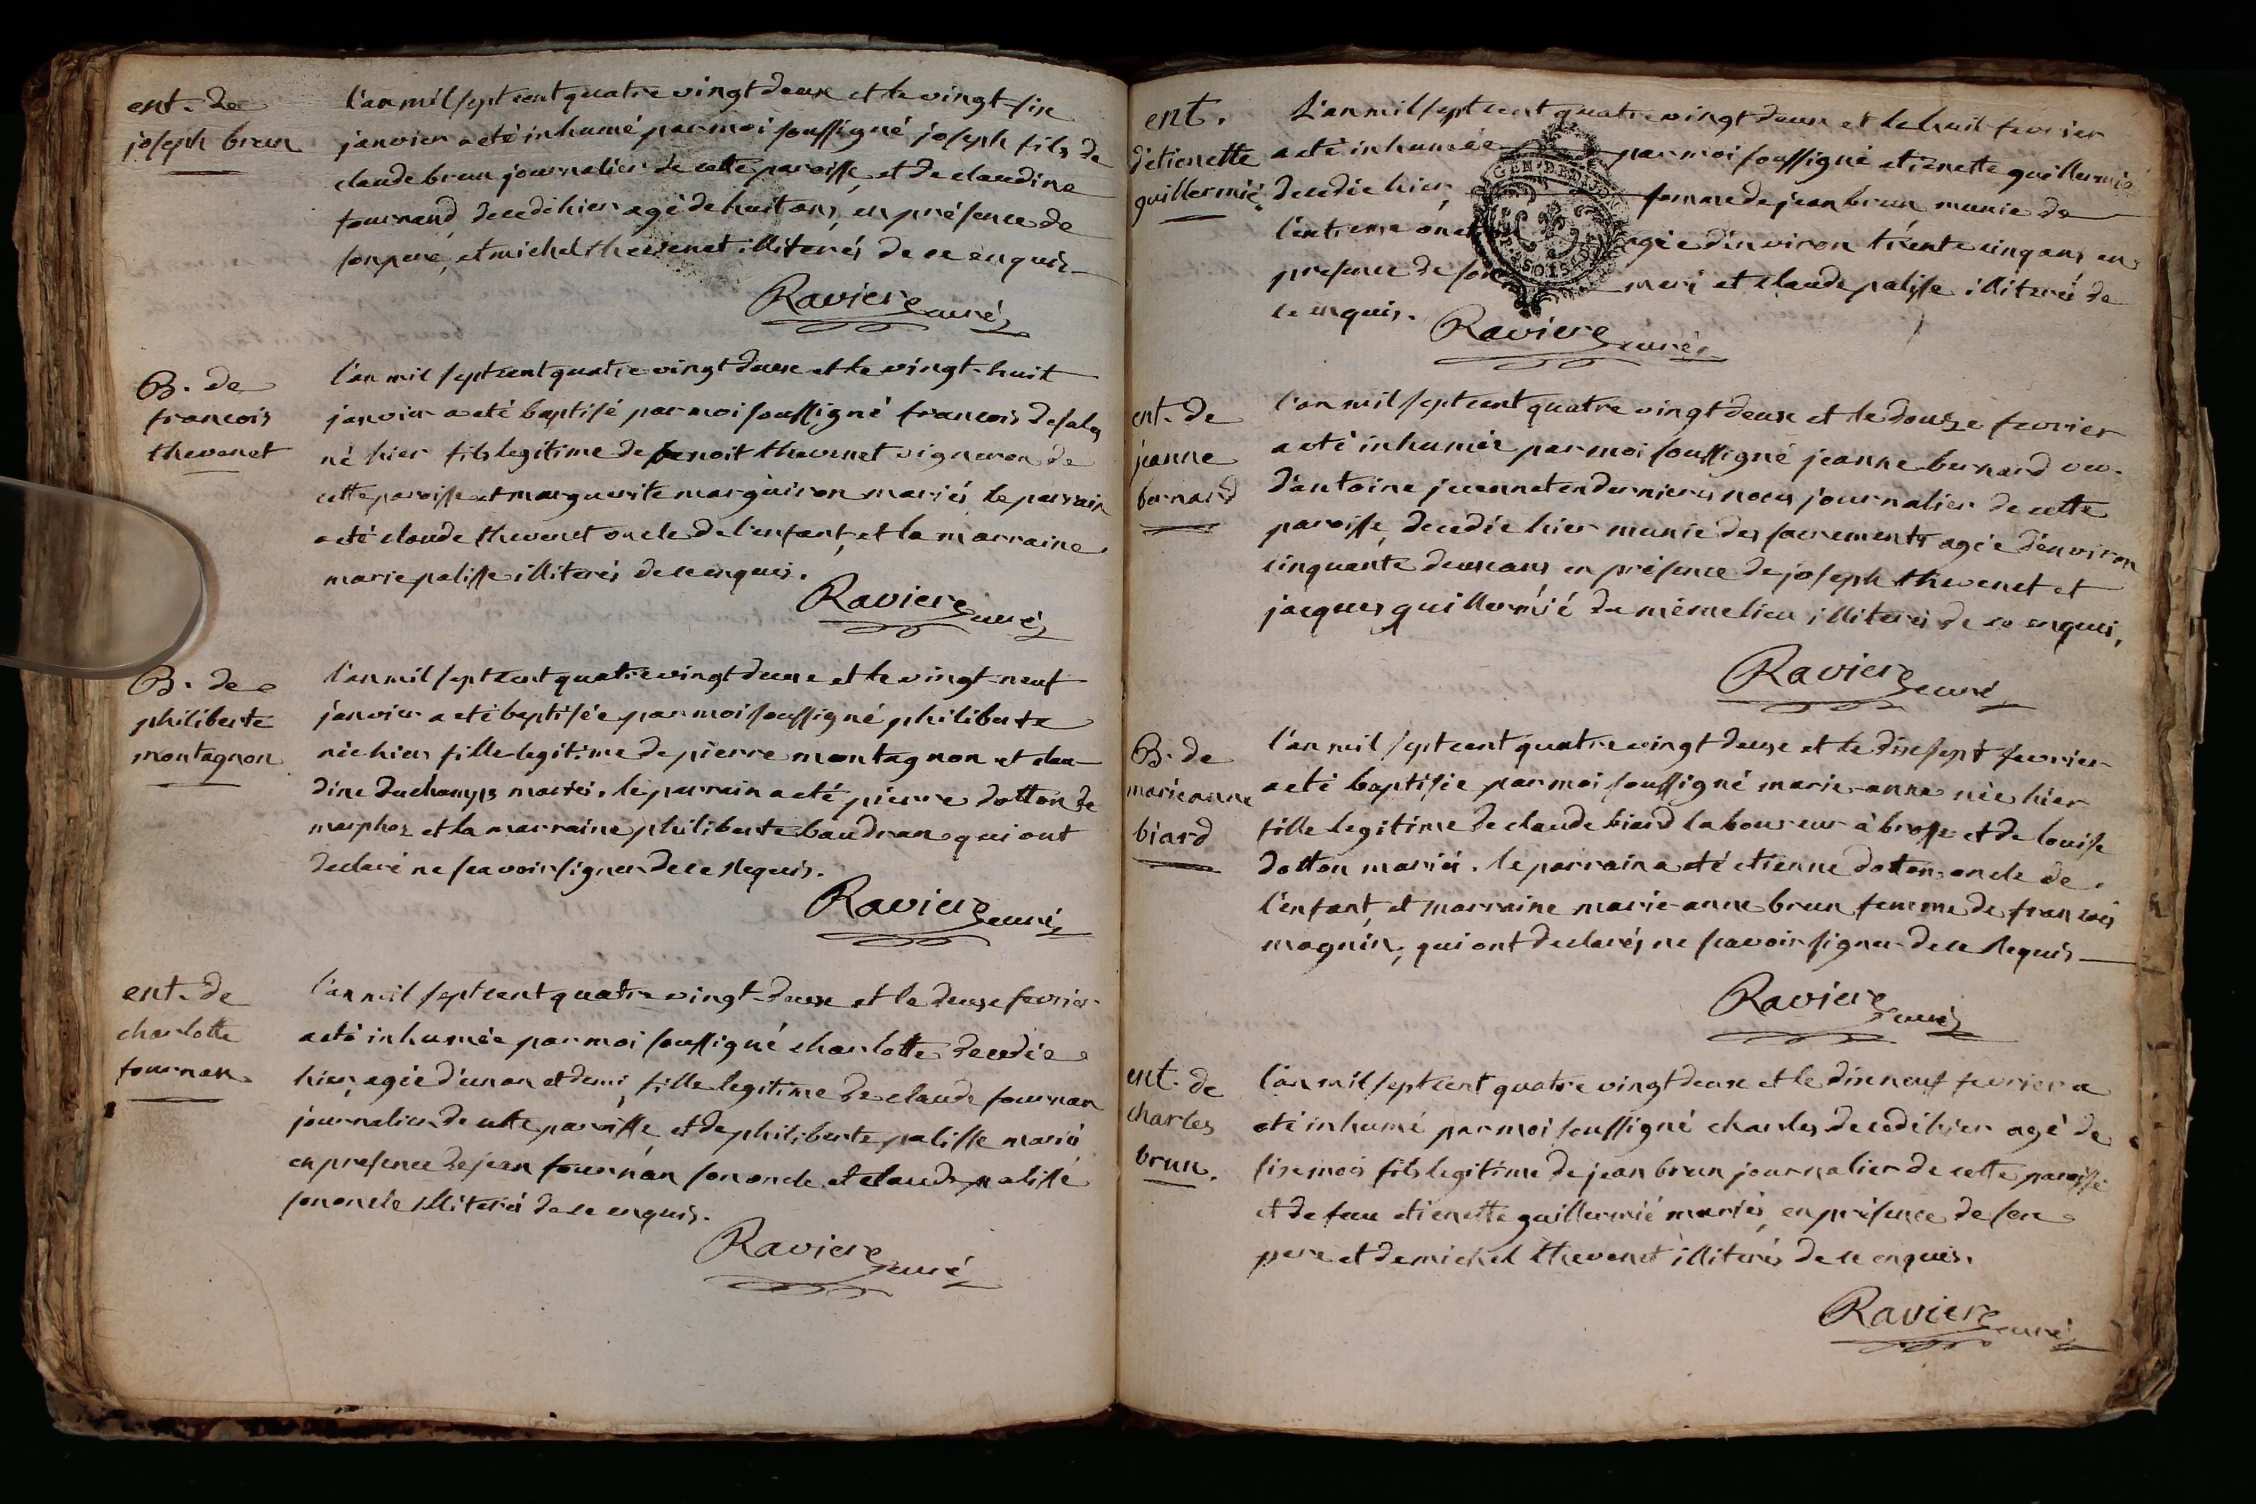 ent. de
joseph brun
l'an mil sept cent quatre vingt deux et le vingt-six
janvier a eté inhumé par moi soussigné joseph fils de
claude brun journalier de cette paroisse, et de claudine
fournand, decedé hier agé de huit ans, en présence de
son pere, et michel thevenet illiterés de ce enquis
Raviere curé
B. de
francois
thevenet
l'an mil sept cent quatre vingt deux et le vingt-huit
janvier a eté baptisé par moi soussigné francois de sales
né hier fils legitime de benoit thevenet vigneron de
cette paroisse et marguerite marguiron mariés, le parrain
a eté claude thevenet oncle de l'enfant, et la marraine
marie palisse illiterés de ce enquis.
Raviere curé
B. de
philiberte
montagnon
l'an mil sept cent quatre vingt deux et le vingt-neuf
janvier a eté baptisée par moi soussigné philiberte
née hier fille legitime de pierre montagnon et clau-
dine duchamps mariés. le parrain a eté pierre dotton de
et la marraine philiberte baudran qui ont
declaré ne scavoir signer de ce requis.
Raviere curé
ent. de
charlotte
fournan
l'an mil sept cent quatre vingt-deux et le deux fevrier
a eté inhumée par moi soussigné charlotte decedée
hier, agée d'un an et demi, fille legitime de claude fournan
journalier de cette paroisse, et de philiberte palisse mariés
en presence de jean fournan son oncle et claude palisse
son oncle illiterés de ce enquis.
Raviere curé
ent.
d'etienette
guillermié.
L'an mil sept cent quatre vingt deux et le huit fevrier
a eté inhumée par moi soussigné etienette guillermié
decedée hier, femme de jean brun, munie de
l'extreme agée d'environ trente cinq ans en
presence de son mari et claude palisse illiterés de
ce enquis.
Raviere curé
GEN. DE DIJON
ent. de
jeanne
bernard
l'an mil sept cent quatre vingt deux et le douze fevrier
a eté inhumée par moi soussigné jeanne bernard veu.
d'antoine en dernieres noces journalier de cette
paroisse, decedée hier munie des sacrements agée d'environ
cinquante deux ans, en présence de joseph thevenet et
jacques guillermié du même lieu illiterés de ce enquis,
Raviere curé
B. de
marie anne
biard
l'an mil sept cent quatre vingt deux et le dix sept fevrier
a eté baptisée par moi soussigné marie-anne née hier
fille legitime de claude biard laboureur à brosse et de louise
dotton mariés. le parrain a eté etienne dotton oncle de
l'enfant, et marraine marie-anne brun femme de francois
magnin, qui ont declarés ne scavoir signer de ce requis
Raviere curé
ent. de
charles
brun.
l'an mil sept cent quatre vingt deux et le dix neuf fevrier a
eté inhumé par moi soussigné charles decedé hier agé de
six mois fils legitime de jean brun journalier de cette paroisse
et de feue etienette guillermié mariés, en présence de son
pere et de michel thevenet illiterés de ce enquis.
Raviere curé